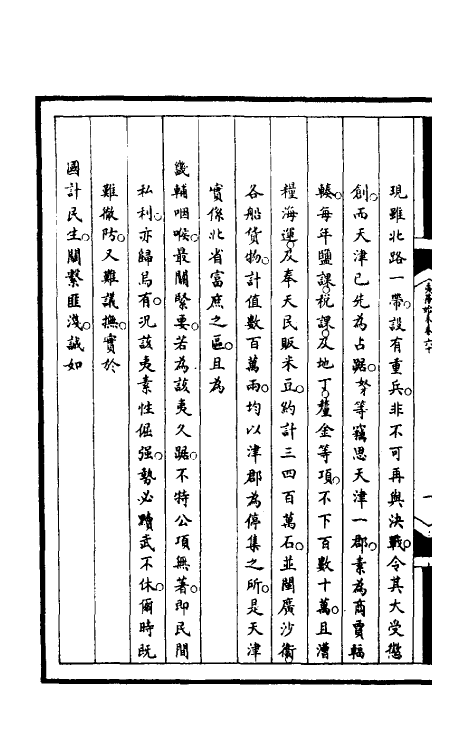 現雖北路一帶。設有重兵。非不可再與決戰。令其大受懲
創。而天津已先為占踞。弩等竊思天津一郡。素為商賈輻
輳。每年鹽課。稅課。及地丁。釐金等項。不下百數十萬。且漕
糧海運。及奉天民販米豆。約計三四百萬石。並閩廣沙衛。
各船貨物。計值數百萬兩。均以津郡為停集之所。是天津
實係北省富庶之區。且為
畿輔咽喉。最關緊要。若為該夷久踞。不特公項無著。即民間
私利。亦歸烏有。況該夷素性倔强。勢必贖武不休。爾時既
難撤防。又難議撫。實於
國計民生。關繫匪淺。誠如